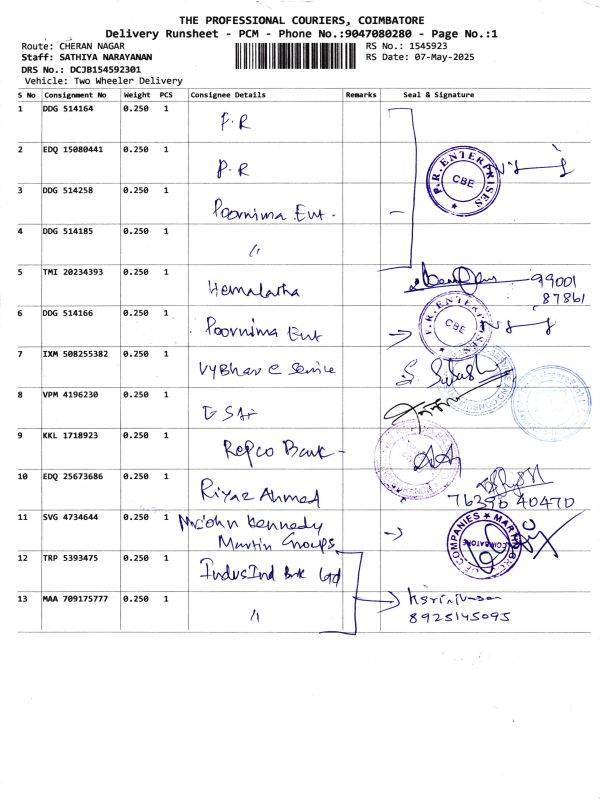 THE PROFESSIONAL COURIERS, COIMBATORE
Delivery Runsheet - PCM - Phone No.:9047080280 - Page No.:1
Route: CHERAN NAGAR
RS No.: 1545923
Staff: SATHIYA NARAYANAN
RS Date: 07-May-2025
DRS No.: DCJB154592301
Vehicle: Two Wheeler Delivery
S No Consignment No Weight PCS Consignee Details Remarks Seal & Signature
1 DDG 514164 0.250 1 P.R
2 EDQ 15080441 0.250 1 P.R
P.R. ENTERPRISES CBE
3 DDG 514258 0.250 1 Poornima Ent -
4 DDG 514185 0.250 1 "
5 TMI 20234393 0.250 1 Hemalatha 99001
87861
6 DDG 514166 0.250 1 Poornima Ent
P.R. ENTERPRISES CBE
7 IXM 508255382 0.250 1 Vybhav e Service S. Subash
8 VPM 4196230 0.250 1
9 KKL 1718923 0.250 1 Repco Bank -
10 EDQ 25673686 0.250 1 Riyaz Ahmed
76396 40470
11 SVG 4734644 0.250 1 Mr John Kennedy
Martin Groups
OF COMPANIES ★ MARTIN COIMBATORE
12 TRP 5393475 0.250 1 IndusInd Bnk Ltd
13 MAA 709175777 0.250 1 " K Srinivasan
8925145095